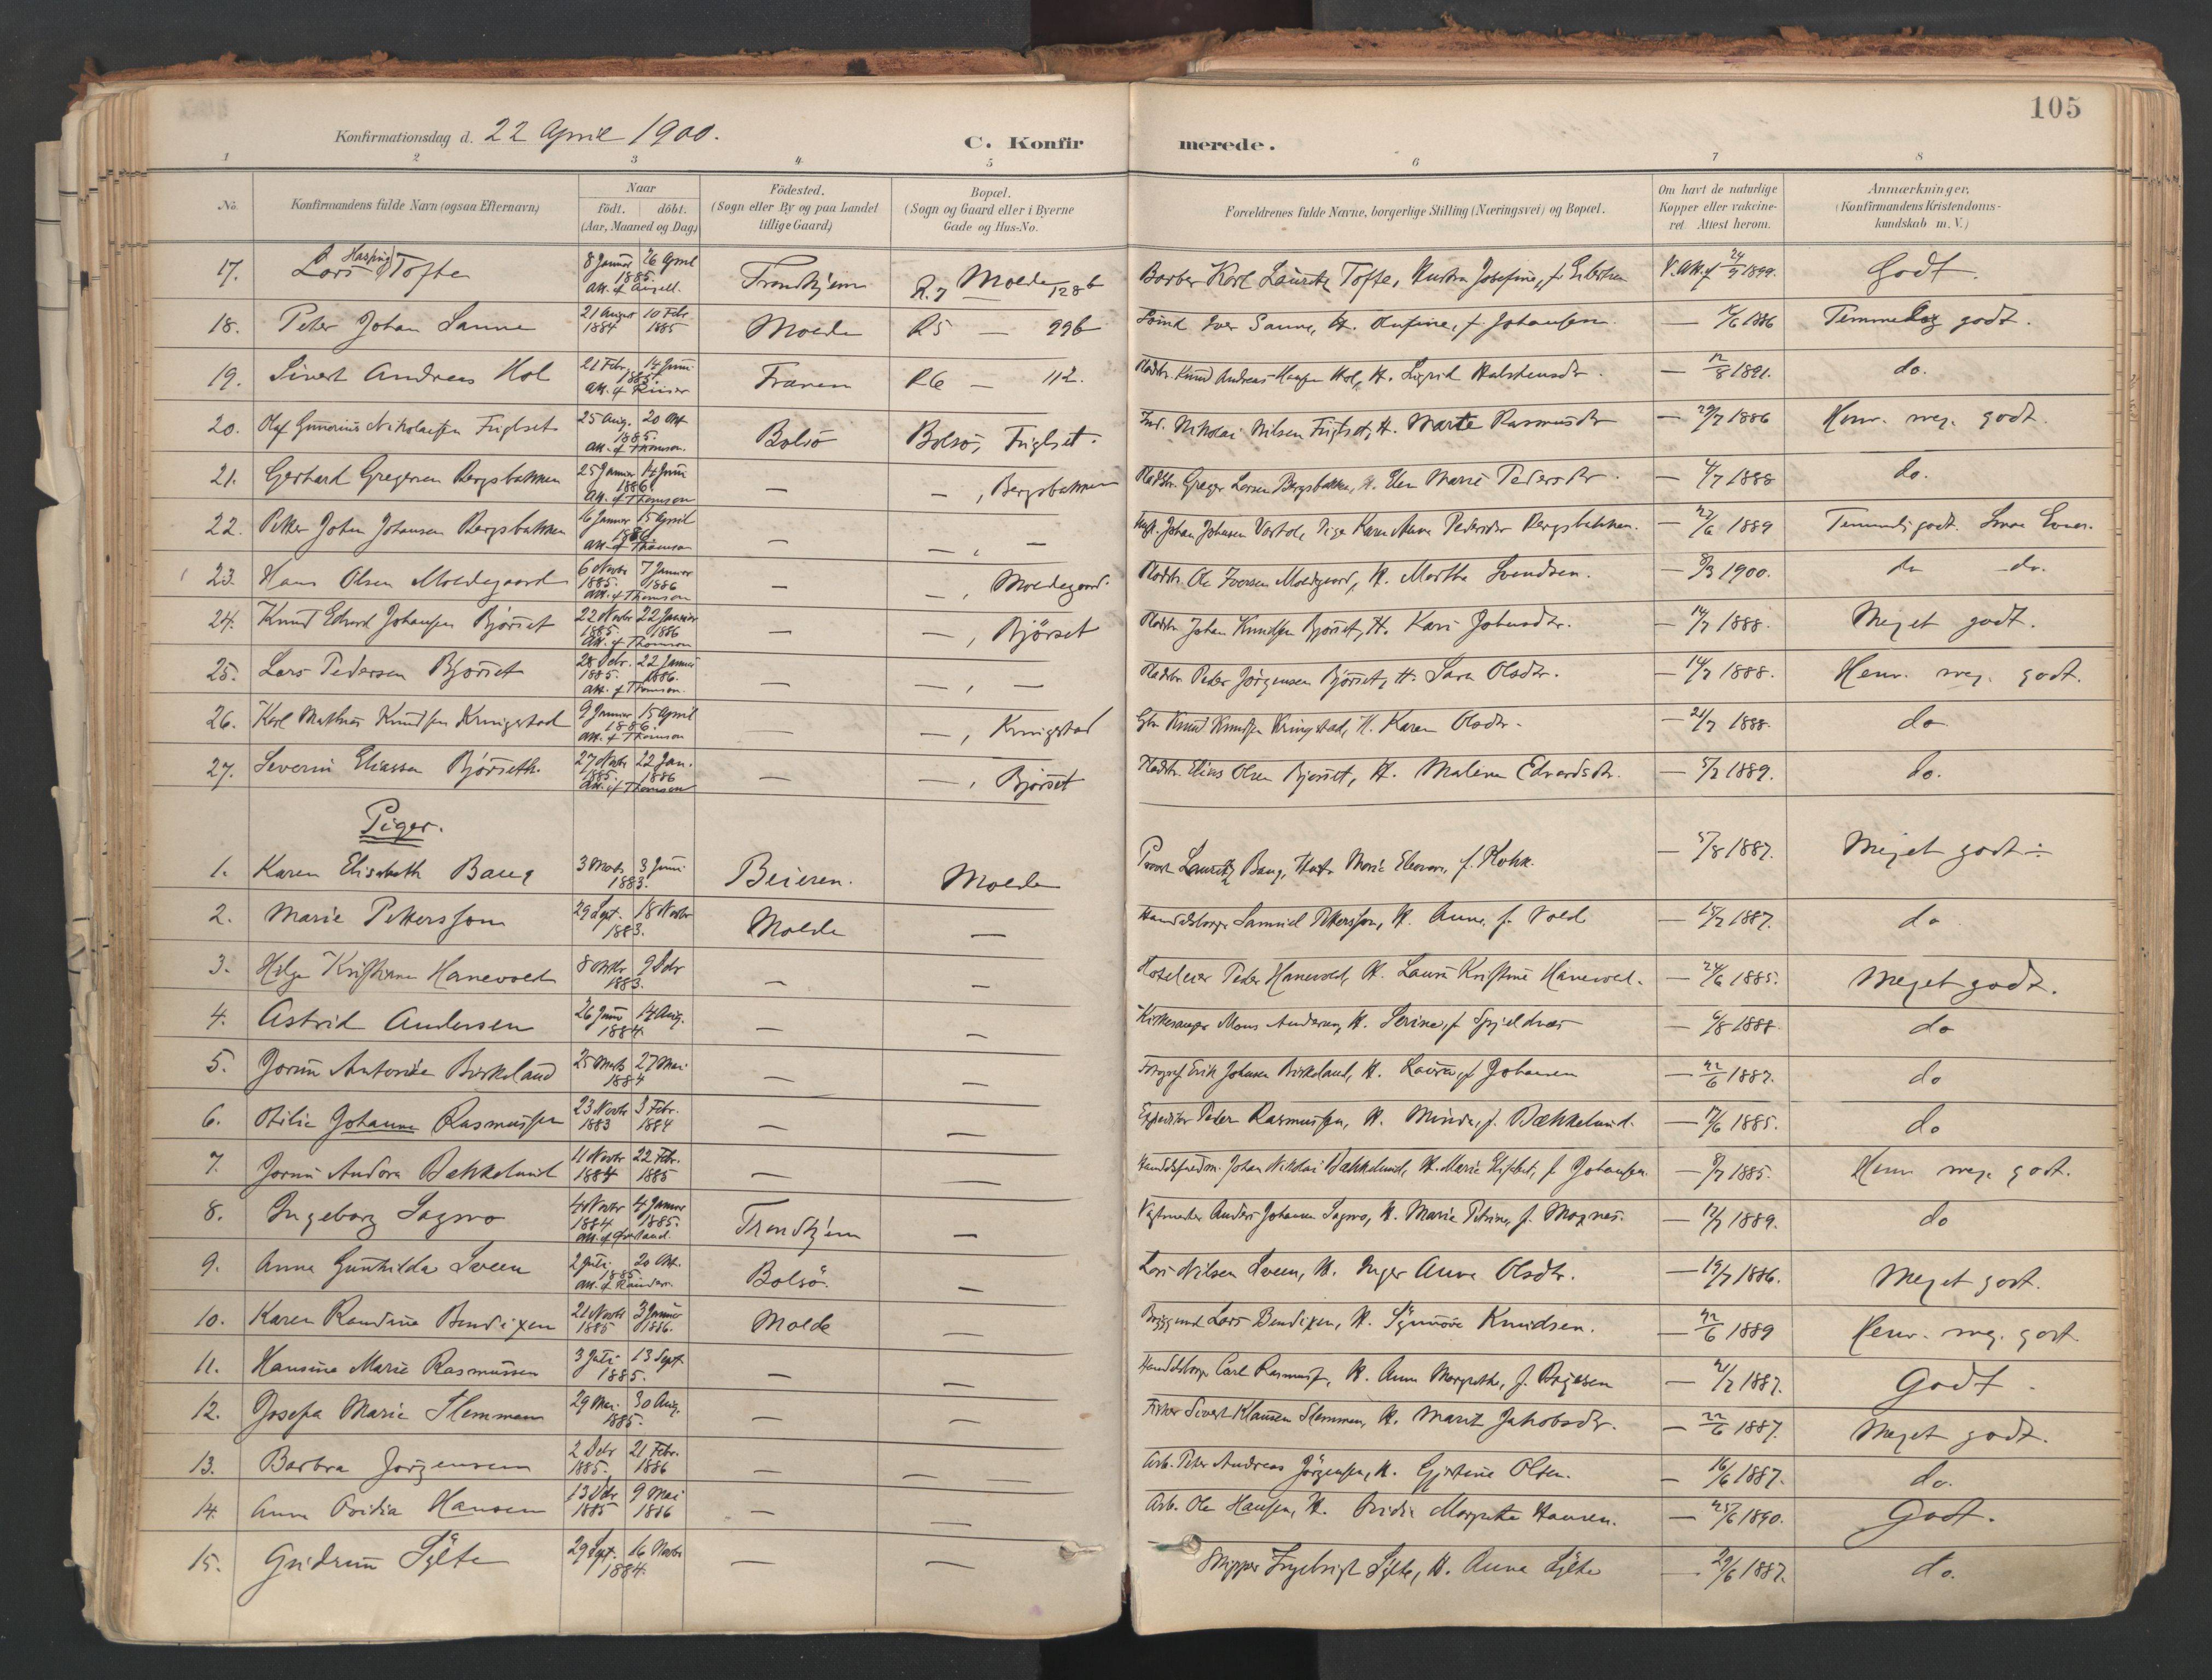 105
Konfirmationsdag d. 22 April 1900.
C. Konfirmerede.
1 2 3 4 5 6 7 8
No.
Konfirmandens fulde Navn (ogsaa Efternavn)
Naar
födt. | döbt.
(Aar, Maaned og Dag)
Födested.
(Sogn eller By og paa Landet
tillige Gaard)
Bopæl.
(Sogn og Gaard eller i Byerne
Gade og Hus-No.
Forældrenes fulde Navne, borgerlige Stilling (Næringsvei) og Bopæl.
Om havt de naturlige
Kopper eller vakcine-
ret. Attest herom.
Anmærkninger.
(Konfirmandens Kristendoms-
kundskab m. V.)
17. Lars Tofte 8 Januar 26 April 1885. Att. f. Trondhjem R. 7 Molde 128b Barber Karl Lauritz Tofte, Hustru Josefine, f. V. Att. f 1899. Godt.
18. Peter Johan Sanne 21 August 1884 10 Febr. 1885 Molde R5 — 99b Iver Sanne, H. Olufine, f. Johansen. — 1886 Temmelig godt.
19. Sivert Andreas Hol 21 Febr. 14 Juni 1885. Frænen R6 — 112. Knud Andreas Hansen Hol, H. Sigrid — 12/8 1891. do.
20. Olaf Gunerius Nikolaisen Fuglset 25 Aug. 20 Okt 1885. Att. f Thomson. Bolsö Bolsö, Fuglset. Ind. Nikolai Nilsen Fuglset, H. Marte Rasmusdtr — 29/7 1886 Henv. meg. godt.
21. Gerhard Gregersen Bergsbakken 25 Januar 14 Juni 1886. Att. f Thomson — — , Bergsbakken Pladstr. Greger Larsen Bergsbakken, H. Elen Marie Pedersdtr. — 4/7 1888 do.
22. Petter John Johansen Bergsbakken 16 Januar 15 April 1886 Att. f Thomson — — , — Johan Johnsen Pige Karen Anne Pedersdtr Bergsbakken. — 22/6 1889 Temmeli godt.
23. Hans Olsen Moldegaard 6 Novbr 1885. 7 Januar 1886 Att. f Thomson — — , Moldegaard. Pladstr. Ole Iversen Moldegaard, H. Martha Svendsen. — 8/3 1900. do do.
24. Knud Edvard Johansen Bjørset 22 Novbr 1885. 22 Januar 1886 Att. f Thomson — — , Bjørset Pladstr. Johan Knudsen Bjørset, H. Kari Johnsdtr. — 14/7 1888. Meget godt.
25. Lars Pedersen Bjørset 28 Debr. 1885. 22 Januar 1886. Att. f Thomson. — — , — Pladstr. Peder Jörgensen Bjørset, H. Sara Olsdtr. — 14/7 1888. Henv. meg. godt.
26. Karl Mathias Knudsen Kringstad 9 Januar 15 April 1886. Att. f Thomson — — , Kringstad Gbr. Knud Knudsen Kringstad, H. Karen Olsdtr. — 21/7 1888. do
27. Severin Eliassen Bjørseth. 27 Novbr 1885. 22 Jan. 1886 Att. f Thomson — — , Bjørset Pladstr. Elias Olsen Bjørset, H. Malene Edvardsdtr. — 5/7 1889. do.
Piger.
1. Karen Elisabeth Bang 3 Marts 3 Juni 1883. Beieren. Molde Provst Lauritz Bang, Hustr Marie Eleonore, f. — 5/8 1887. Meget godt
2. Marie Pettersson 29 Sept. 18 Novbr 1883. Molde — Handelsborger Samuel Pettersson, H. Anne, f. Vold — 15/7 1887. do
3. Helga Kristiane Hanevold 8 Oktbr 9 Debr 1883. — — Hoteleier Peder Hanevold, H. Laura Kristine Hanevold. — 24/6 1885. Meget godt.
4. Astrid Andersen 26 Juni 14 Aug. 1884. — — Kirkesanger Mons Andersen, H. Serine, f. Spjeldnæs — 6/8 1888. do
5. Jorun Antonie Birkeland 25 Marts 27 Mai 1884 — — Fotograf Erik Johnsen Birkeland, H. Laura, f. Johansen — 22/6 1887. do
6. Otilie Johanne Rasmussen 23 Novbr 1883 3 Febr. 1884 — — Expeditör Peder Rasmussen, H. Minda, f. Bækkelund. — 17/6 1885. do
7. Jorun Andora Bækkelund 11 Novbr 1884 22 Febr. 1885 — — Johan Nikolai Bækkelund, H. Marie Elisabet, f. Johansen. — 8/7 1885. Henv. meg. godt.
8. Ingeborg Sagmo 4 Novbr 1884 4 Januar 1885. Trondhjem — Vagtmester Anders Johansen Sagmo, H. Marie Petrine, f. Mognes. — 12/7 1889. do
9. Anna Gunhilda Sveen 2 Juli 20 Okt. 1885 Bolsö. — Lars Nilsen Sveen, H. Inger Anne Olsdtr. — 19/7 1886. Meget godt.
10. Karen Randine Bendixen 21 Novbr 1885 3 Januar 1886. Molde — Lars Bendixen, H. Synnöve Knudsen. — 22/6 1889 Henv. meg. godt
11. Hansine Marie Rasmussen 3 Juli 13 Sept 1885. — — Handelsborger Carl Rasmuss., H. Anne Margrethe, f. — 21/7 1887. Godt.
12. Josefa Marie Stemmem 29 Mai. 30 Aug. 1885. — — Fisker Sivert Klausen Stemmem, H. Marit Jakobsdtr. — 22/6 1887. Meget godt.
13. Barbra Jørgensen 2 Debr 1885. 21 Febr. 1886 — — — Arb. Peter Andreas Jørgensen, H. Gjertine Olsen. — 16/6 1887. do.
14. Anne Ovidia Hansen 13 Debr 1885 9 Mai 1886 — — Arb. Ole Hansen, H. Ovidia Margrethe Hansen. — 25/6 1890. Godt.
15. Gudrun Sylte 29 Sept. 16 Novbr 1884. — — Skipper Ingebrigt Sylte, H. Anna Sylte — 29/6 1887. do.